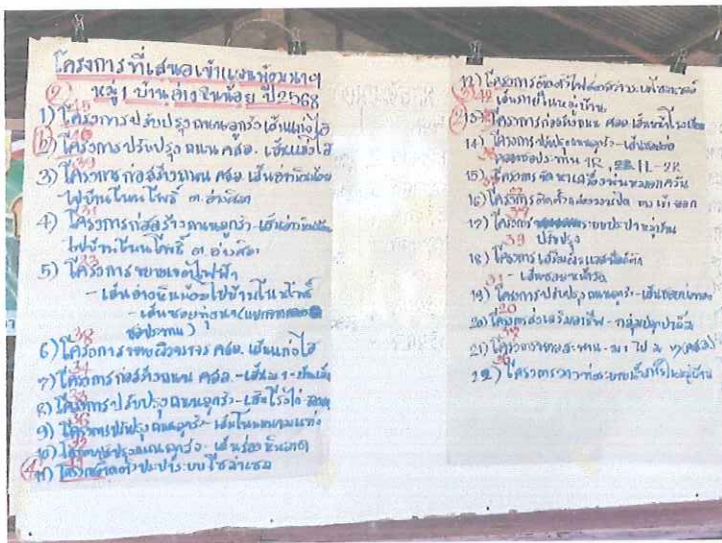 โครงการที่เสนอเข้าแผนพัฒนาฯ
② หมู่ 1 บ้านอ่างหินน้อย ปี 2568
45
1) โครงการปรับปรุงถนนลูกรัง เส้นแก่งไฮ
40
2) โครงการปรับปรุงถนน คสล. เส้นแก่งไฮ
39
3) โครงการก่อสร้างถนน คสล. เส้นอ่างหินน้อย
ไปบ้านโนนโพธิ์ ต.อ่างศิลา
31
4) โครงการก่อสร้างถนนลูกรัง เส้นอ่างหินน้อย
ไปบ้านโนนโพธิ์ ต.อ่างศิลา
23
5) โครงการขยายเขตไฟฟ้า
- เส้นอ่างหินน้อยไปบ้านโนนโพธิ์
- เส้นซอยทุ่งนา
38
6) โครงการขยายผิวจราจร คสล. เส้นแก่งไฮ
34
7) โครงการก่อสร้างถนน คสล. - เส้น ม.1 -
8) โครงการปรับปรุงถนนลูกรัง - เส้นไร่ไก่ -
36
9) โครงการปรับปรุงถนนลูกรัง - เส้นโนน
10) โครงการปรับปรุงถนนลูกรัง - เส้นร่องหินลาด
④ 11) โครงการติดตั้งประปาระบบโซล่าเซล
12) โครงการติดตั้งไฟส่องสว่างระบบโซลาเซลล์
เส้นภายในหมู่บ้าน
13) โครงการก่อสร้างถนน คสล. เส้นหน้าโรงเรียน
14) โครงการปรับปรุงถนนลูกรัง - เส้นซอย
คลองชลประทาน 4R, 1L-2R
15) โครงการจัดหาเครื่องพ่นหมอกควัน
16) โครงการติดตั้งกล้องวงจรปิด ทางเข้า-ออก
17) โครงการ ระบบประปาหมู่บ้าน
39 ปรับปรุง
18) โครงการเสริมผิวแอสฟัลติก
- เส้นซอย
19) โครงการปรับปรุงถนนลูกรัง - เส้นซอย
20
20) โครงการส่งเสริมอาชีพ - กลุ่ม
21) โครงการ สะพาน - ม.1 ไป ม. (คสล)
22) โครงการวางท่อระบายน้ำภายในหมู่บ้าน